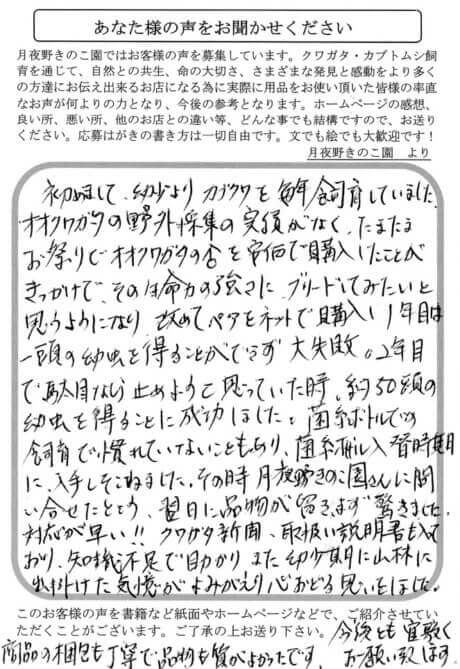 あなた様の声をお聞かせください
月夜野きのこ園ではお客様の声を募集しています。クワガタ・カブトムシ飼
育を通じて、自然との共生、命の大切さ、さまざまな発見と感動をより多く
の方達にお伝え出来るお店になる為に実際に用品をお使い頂いた皆様の率直
なお声が何よりの力となり、今後の参考となります。ホームページの感想、
良い所、悪い所、他のお店との違い等、どんな事でも結構ですので、お送り
ください。応募はがきの書き方は一切自由です。文でも絵でも大歓迎です!
月夜野きのこ園 より
初めまして、幼少よりカブクワを毎年飼育していました。
オオクワガタの野外採集の実績がなく、たまたま
お祭りでオオクワガタの♀を安価で購入したことが
きっかけで、その生命力の強さに、ブリードしてみたいと
思うようになり、改めてペアをネットで購入し1年目は
一頭の幼虫を得ることができず大失敗。2年目
で駄目なら止めようと思っていた時、約50頭の
幼虫を得ることに成功しました。菌糸ボトルでの
飼育で慣れていないこともあり、菌糸ボトル入替時期
に、入手しそこねました。その時月夜野きのこ園さんに問
い合せたところ、翌日に品物が届き、まず驚きました。
対応が早い!! クワガタ新聞、取扱い説明書も入って
おり、知識不足で助かり また幼少期に山林に
出掛けた気憶がよみがえり心おどる思いをしました。
このお客様の声を書籍など紙面やホームページなどで、ご紹介させてい
ただくことがございます。ご了承の上お送り下さい。
今後とも宜敷く
お願い致します。
商品の梱包も丁寧で品物も質がよかったです。